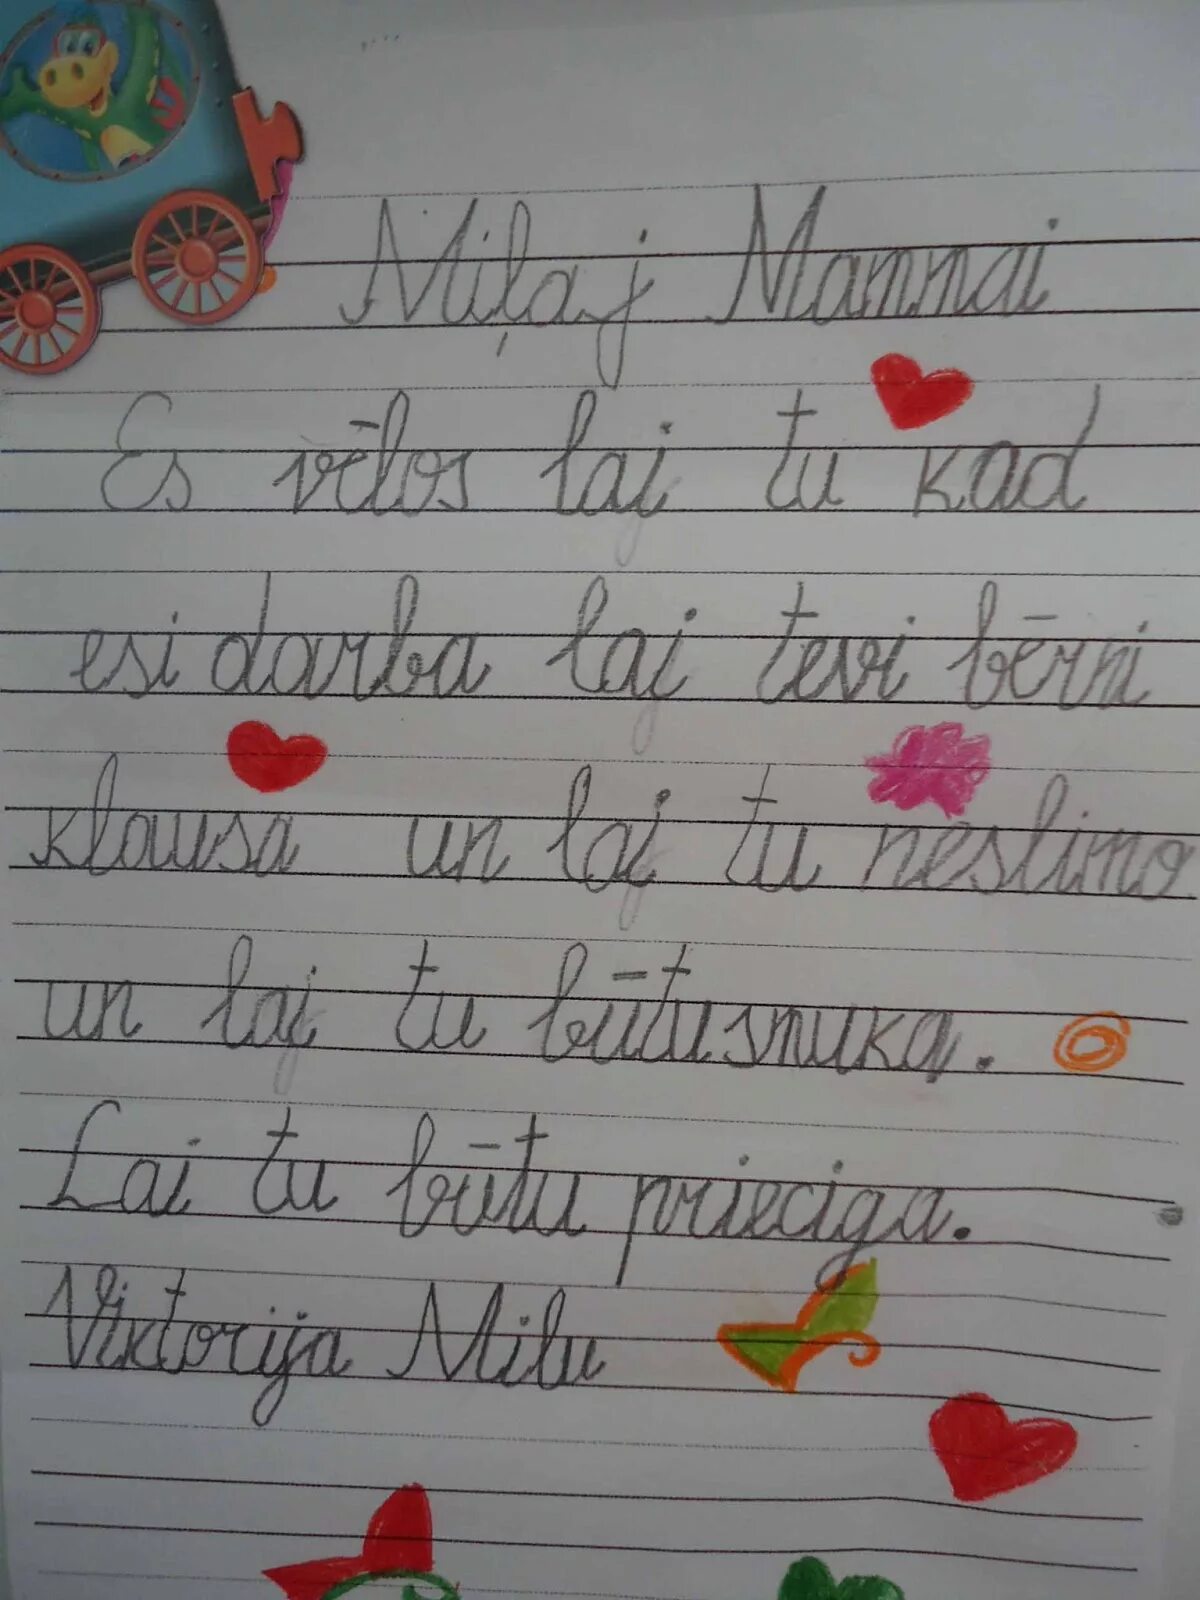 Miļaj Mammai
Es vēlos laj tu kad
esi darba laj tevi bērni
klausa un laj tu neslimo
un laj tu būtu smuka.
Lai tu būtu prieciga.
Viktorija Milu